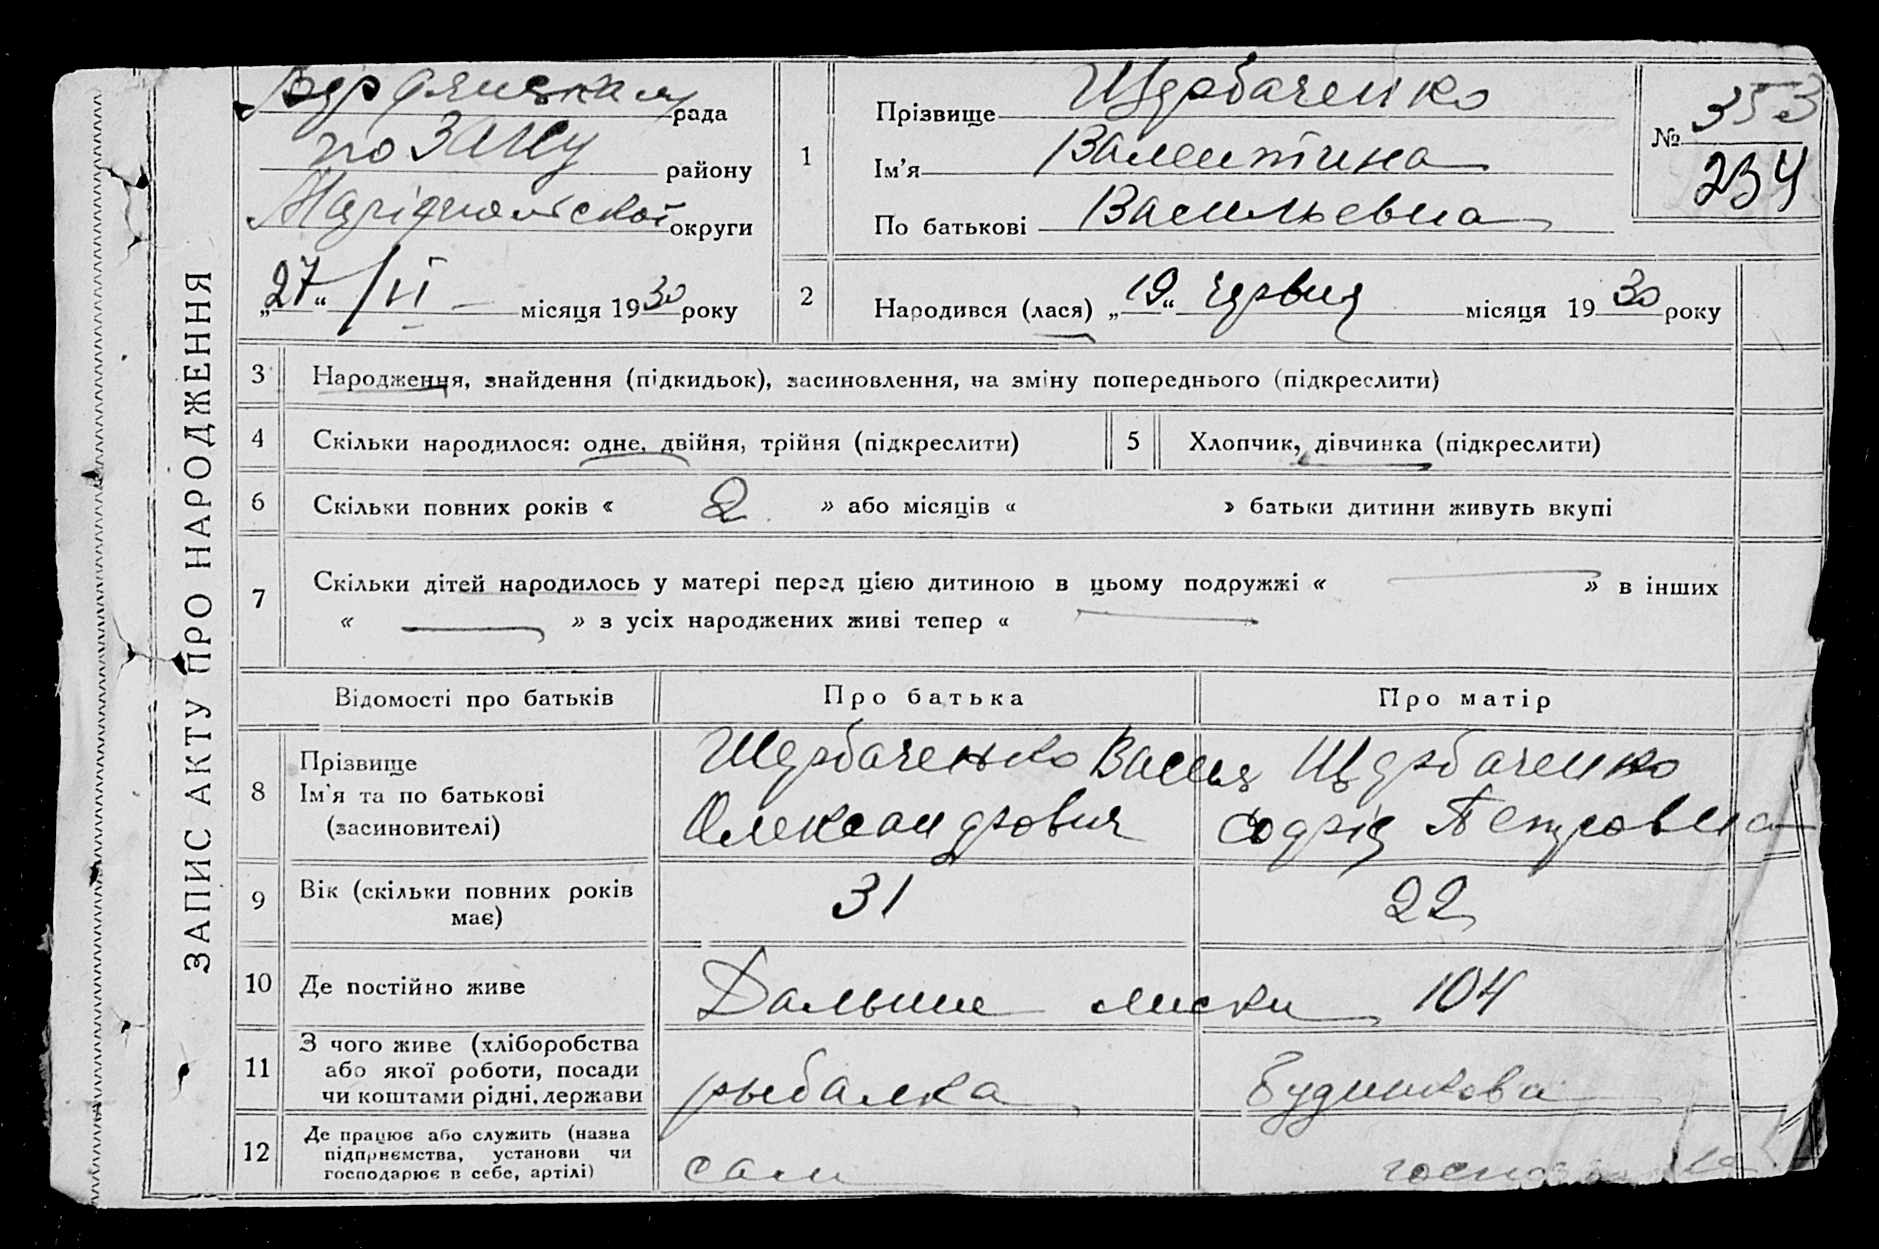 ЗАПИС АКТУ ПРО НАРОДЖЕННЯ
Бердянський рада
по ЗАГСу району
Маріупольської округи
„27“ /VI місяця 1930 року
1
Прізвище Щербаченко
Ім'я Валентина
По батькові Васильевна
№ 353
234
2
Народився (лася) „19“ червня місяця 1930 року
3 Народження, знайдення (підкидьок), засиновлення, на зміну попереднього (підкреслити)
4 Скільки народилося: одне, двійня, трійня (підкреслити)
5 Хлопчик, дівчинка (підкреслити)
6 Скільки повних років « 2 » або місяців « » батьки дитини живуть вкупі
7 Скільки дітей народилось у матері перед цією дитиною в цьому подружжі « — » в інших
« — » з усіх народжених живі тепер « — »
Відомості про батьків Про батька Про матір
8
Прізвище
Ім'я та по батькові
(засиновителі)
Щербаченько Василь
Олександрович
Щербаченко
Петровна
9
Вік (скільки повних років
має)
31
22
10 Де постійно живе
Дальние лиски 104
11
З чого живе (хліборобства
або якої роботи, посади
чи коштами рідні, держави
рыбалка
12
Де працює або служить (назва
підприємства, установи чи
господарює в себе, артілі)
сам